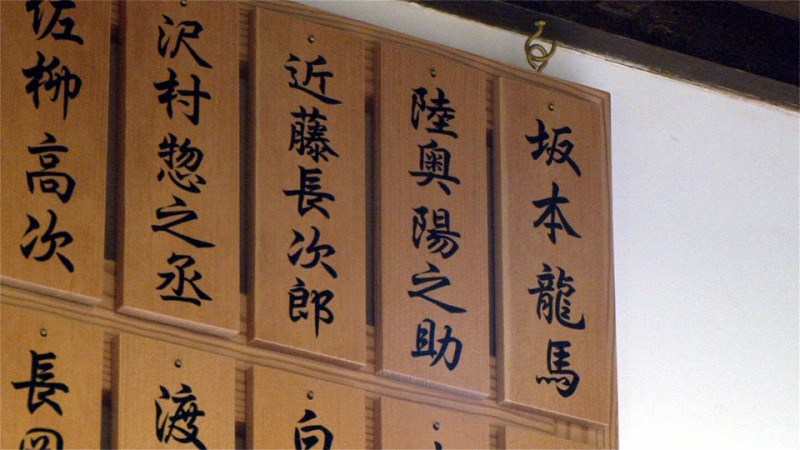 坂本龍馬
陸奥陽之助
近藤長次郎
沢村惣之丞
佐柳高次
渡
長岡